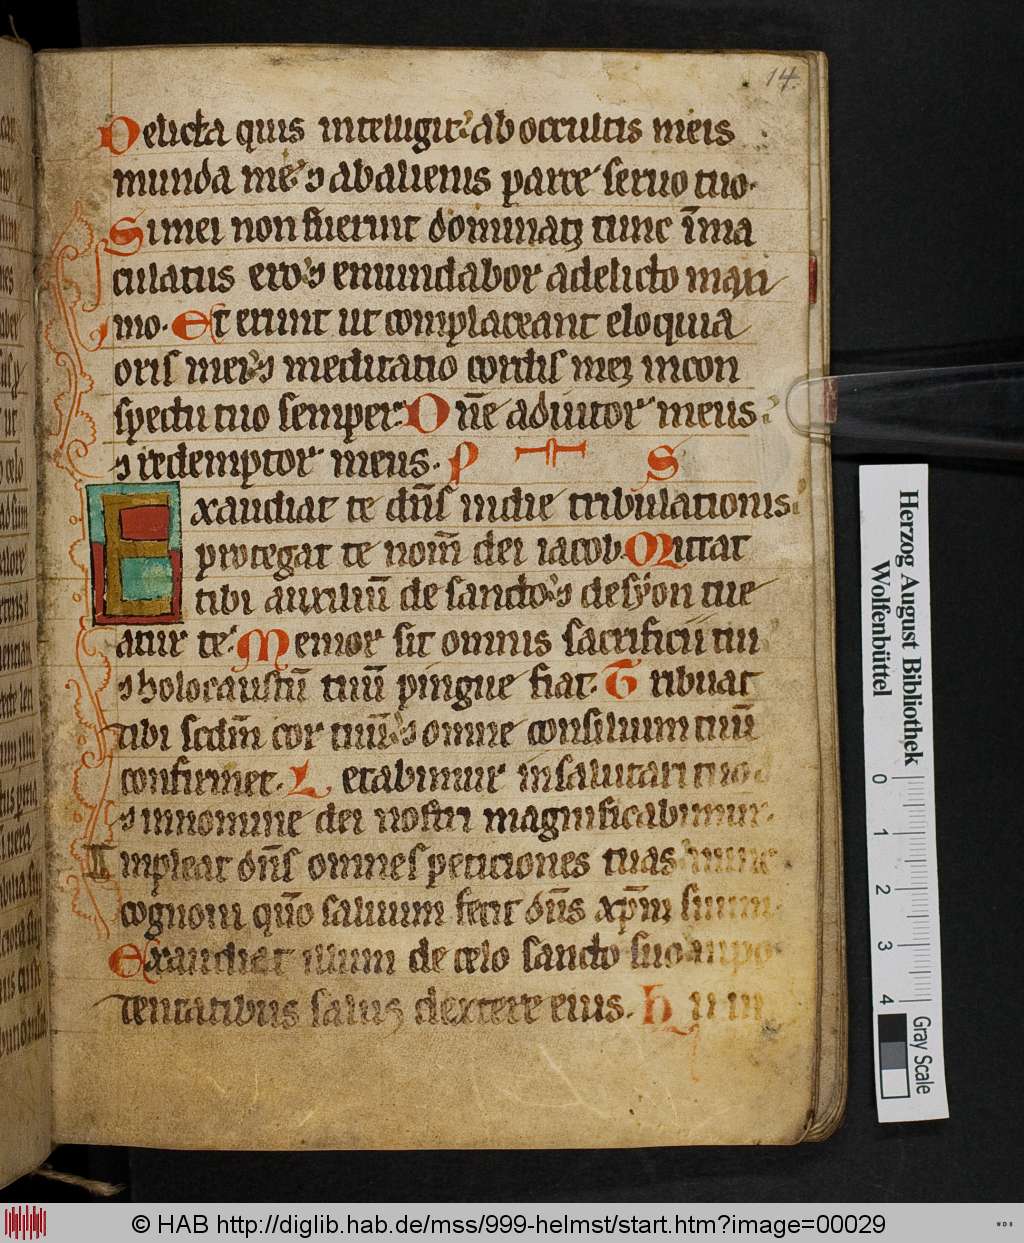 14.
Delicta quis intelligit ab occultis meis
munda me ⁊ ab alienis parce seruo tuo.
Si mei non fuerint dominatꝫ tunc īma
culatus ero ⁊ emundabor a delicto maxi
mo. Et erunt ut complaceant eloquia
oris mei ⁊ meditatio cordis meꝫ in con
spectu tuo semper. Dn̄e adiutor meus
⁊ redemptor meus. P S
Exaudiat te dn̄s in die tribulationis
protegat te nom̄ dei iacob. Mittat
tibi auxiliū de sancto ⁊ de syon tue
atur te. Memor sit omnis sacrificii tui
⁊ holocaustū tuū pingue fiat. Tribuat
tibi scdm̄ cor tuū ⁊ omne consilium tuū
confirmet. Letabimur in salutari tuo
⁊ in nomine dei nostri magnificabimur.
Impleat dn̄s omnes peticiones tuas nunc
cognoui qūo saluum fecit dn̄s xp̄m suum.
Exaudiet illum de celo sancto suo in po
tentatibus salꝫ dextere eius. Hii in
Herzog August Bibliothek
Wolfenbüttel
0 1 2 3 4
Gray Scale
© HAB http://diglib.hab.de/mss/999-helmst/start.htm?image=00029